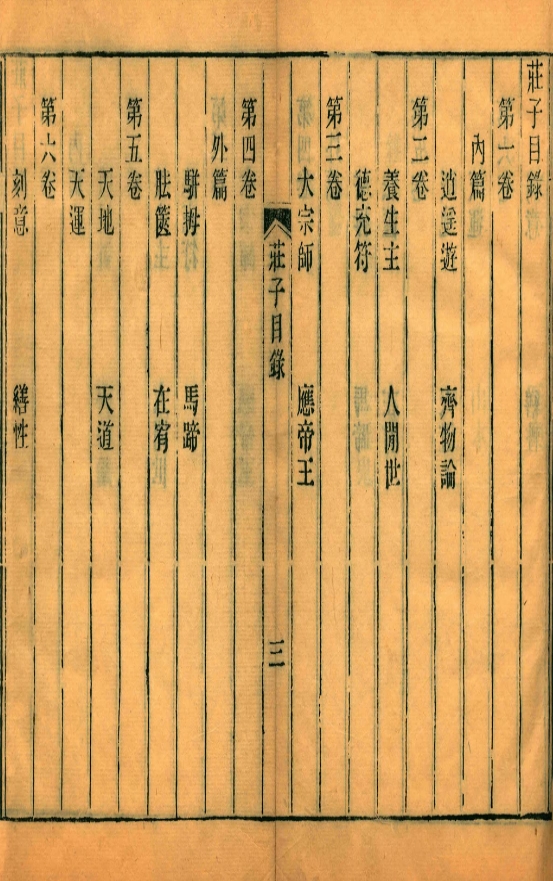 莊子目錄
第一卷
內篇
逍遥遊 齊物論
第二卷
養生主 人閒世
德充符
第三卷
大宗師 應帝王
莊子目錄 三
第四卷
外篇
駢拇 馬蹄
胠篋 在宥
第五卷
天地 天道
天運
第六卷
刻意 繕性